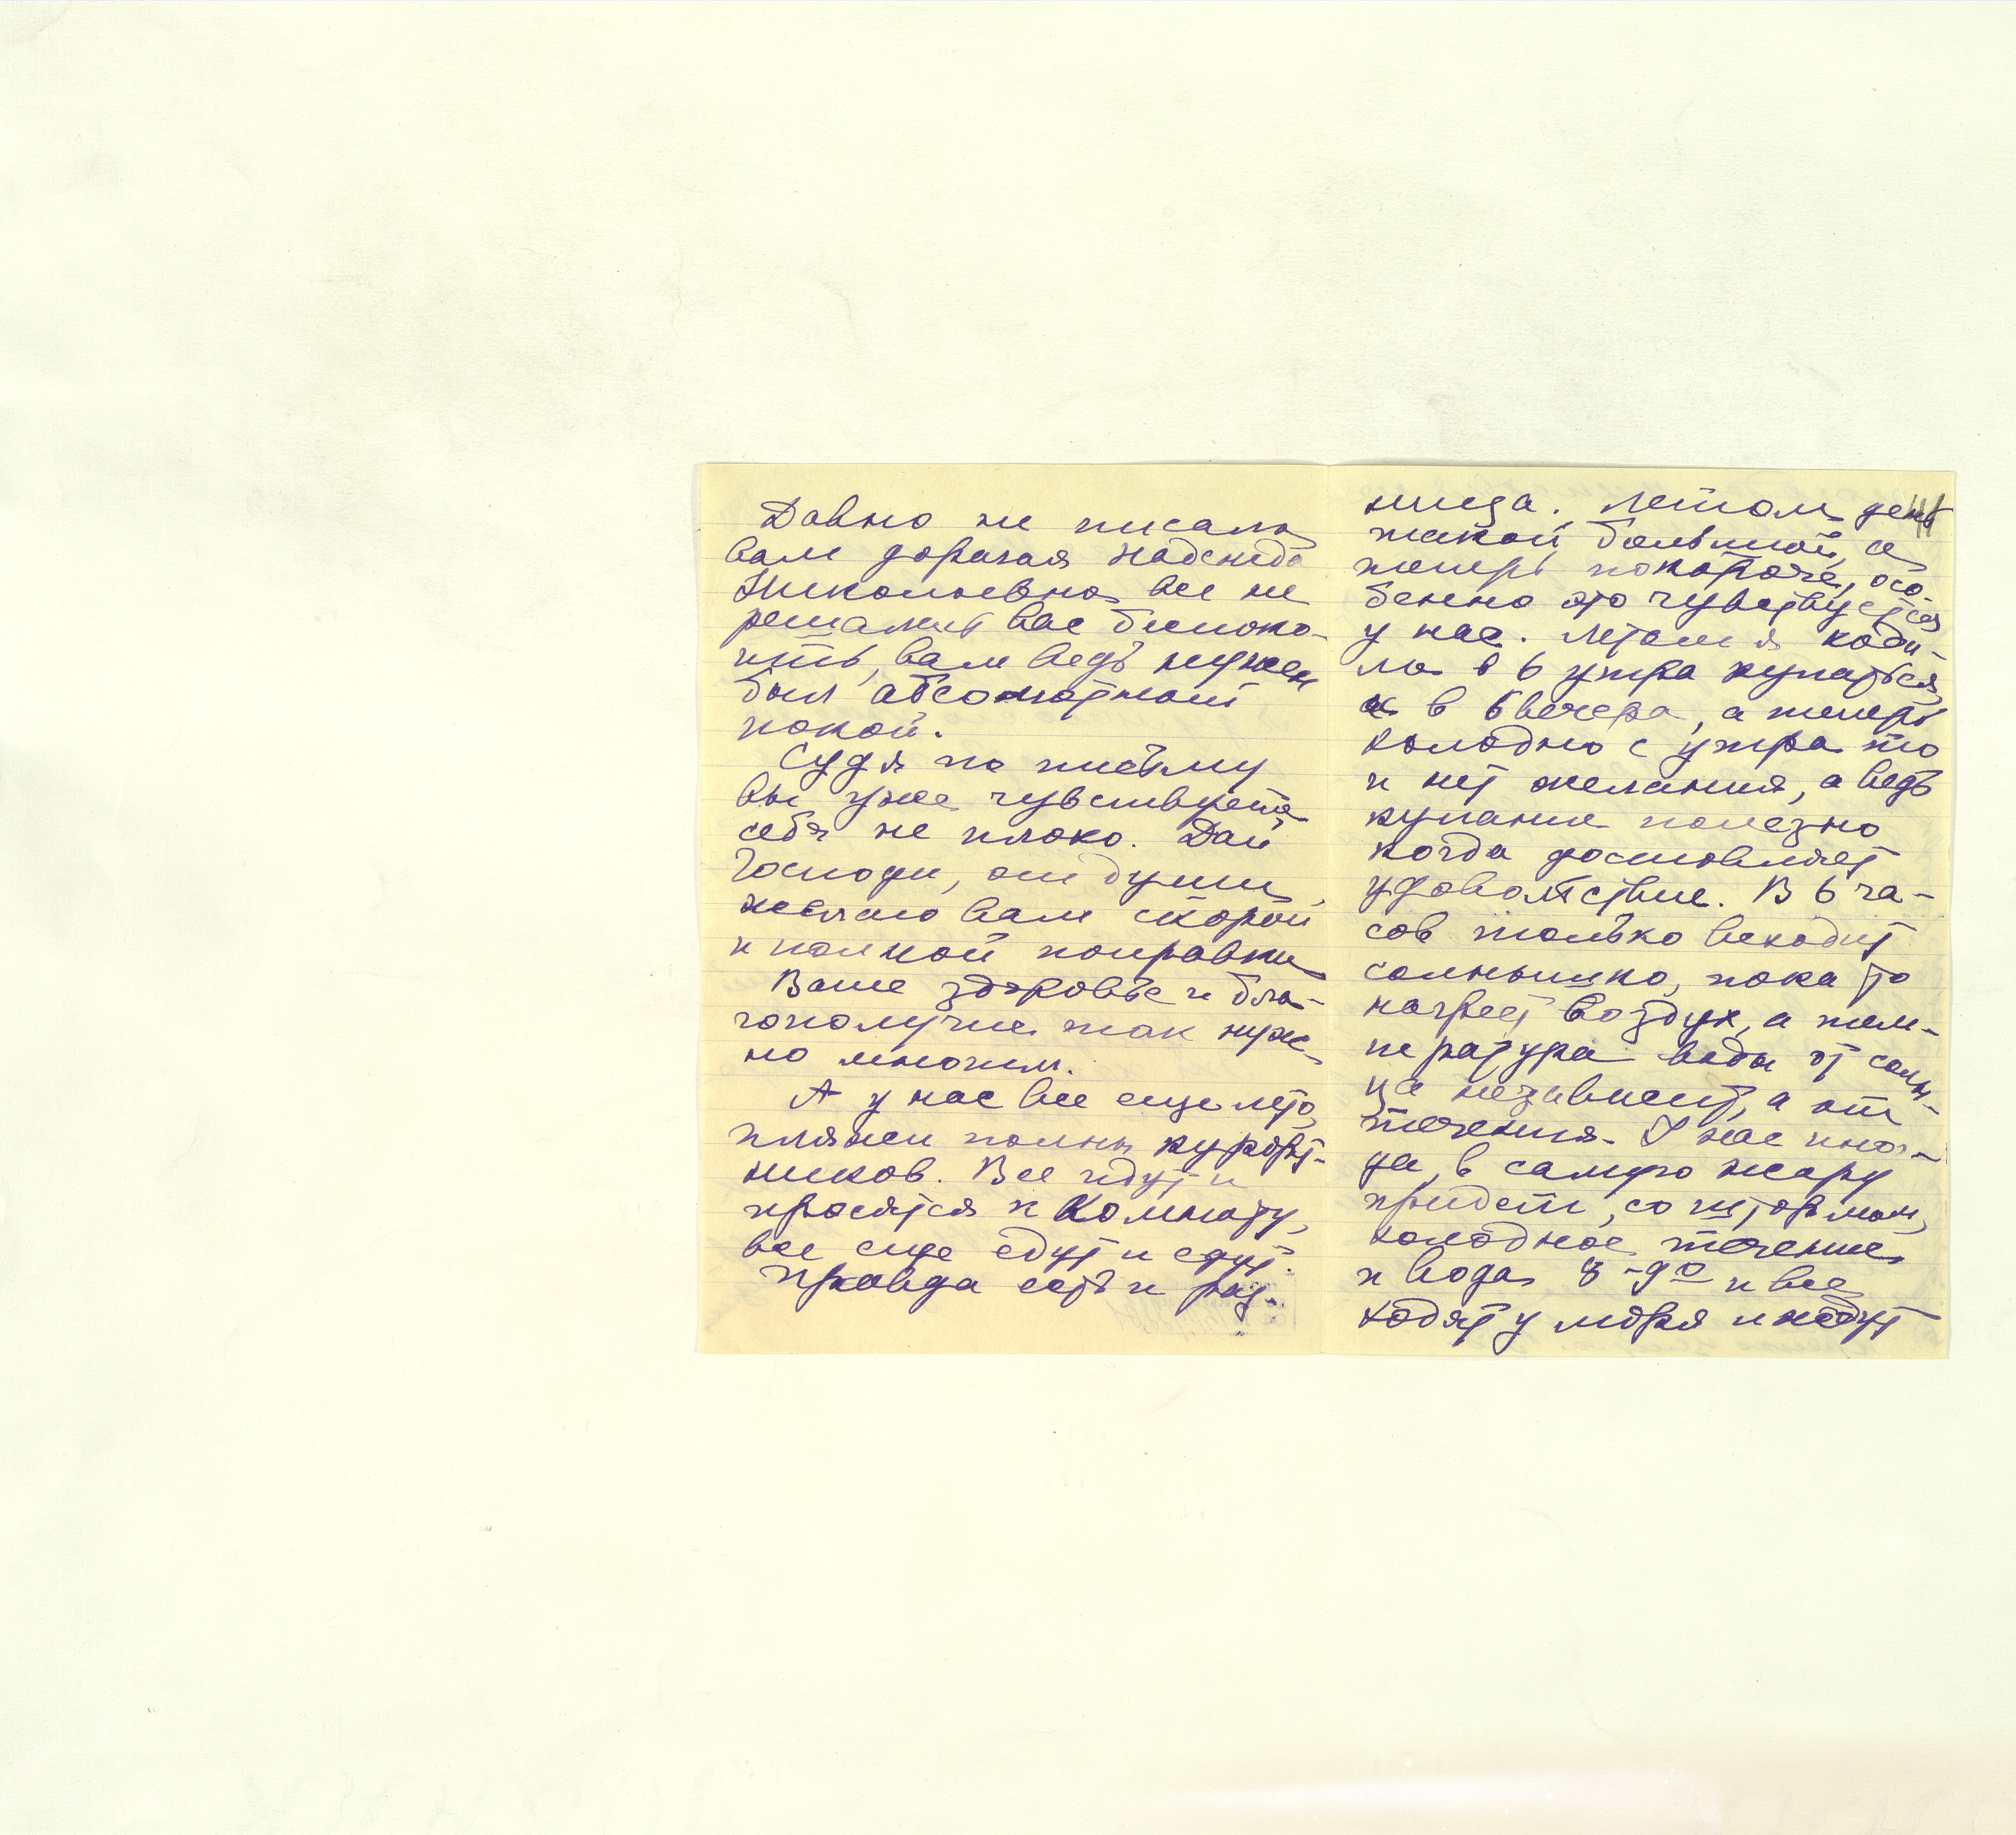 Давно не писала
вам дорогая Надежда
Николаевна, все не
решалась вас беспоко-
ить, вам ведь нужен
был абсолютный
покой.
Судя по письму
вы уже чувствуете
себя не плохо. Дай
Господи, от души
желаю вам скорой
и полной поправки
Ваше здоровье и бла-
гополучие так нуж-
но многим.
А у нас все еще лето,
пляжи полны курорт-
ников. Все идут и
просятся к комнату,
все еще едут и едут.
Правда есть и раз-
ница. Летом день
такой большой, а
теперь покороче, осо-
бенно это чувствуется
у нас. Летом я ходи-
ла в 6 утра купаться,
и в 6 вечера, а теперь
холодно с утра то
и нет желания, а ведь
купание полезно
когда доставляет
удовольствие. В 6 ча-
сов только всходит
солнышко, пока то
нагреет воздух, а тем-
пература воды от солн-
ца независит, а от
течения. У нас иног-
да, в самую жару
придет, со штормом,
холодное течение
и вода 8-9º и все
ходят у моря и ждут